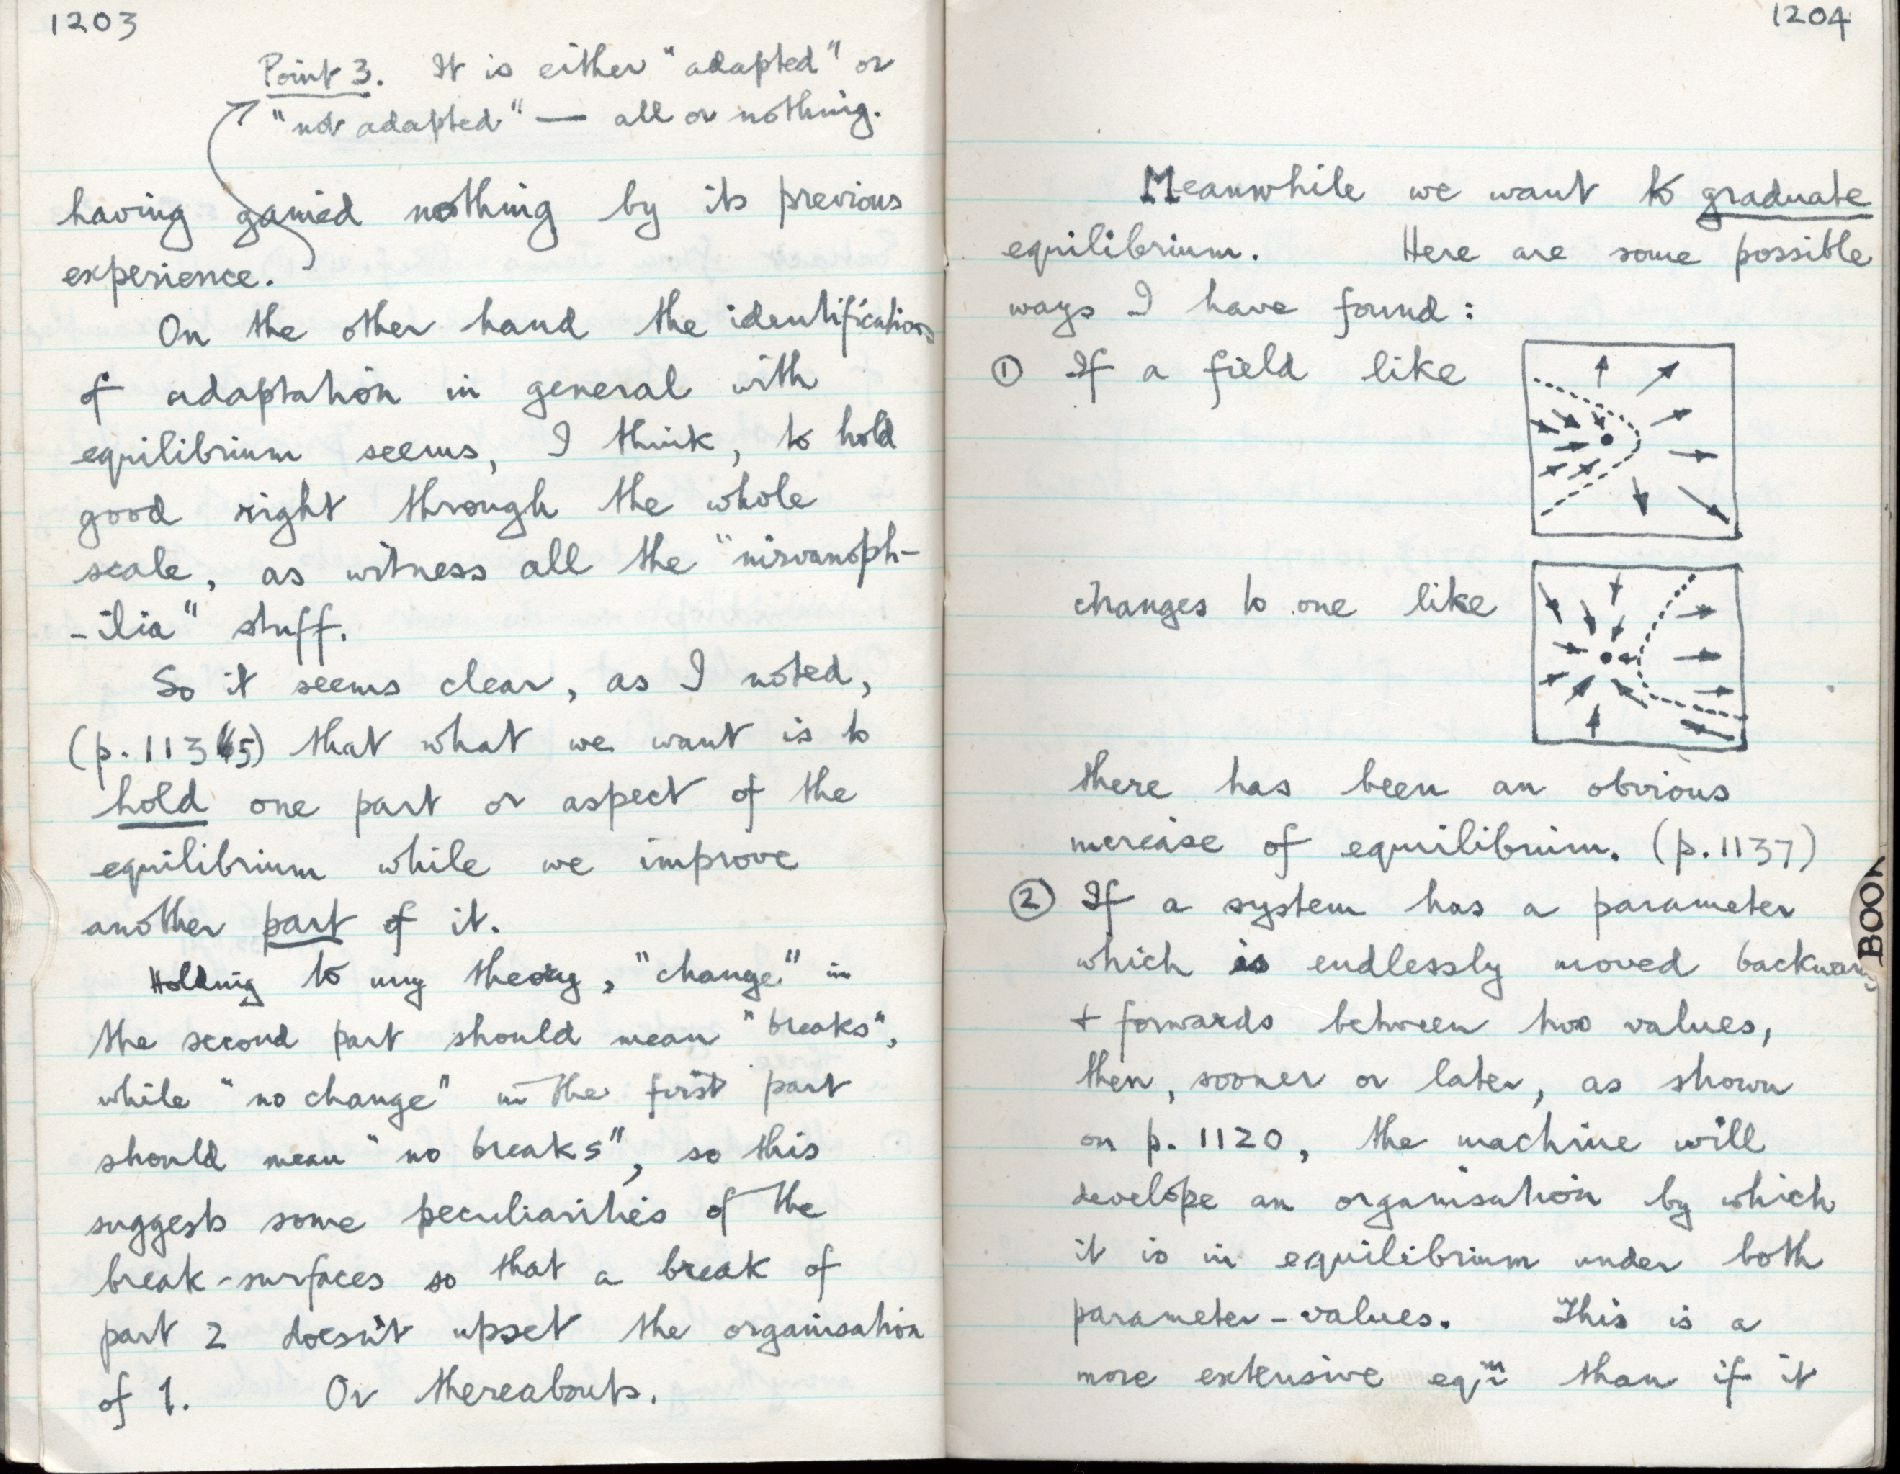 1203
Point 3. It is either "adapted" or
"not adapted" — all or nothing.
having gained nothing by its previous
experience.
On the other hand the identification
of adaptation in general with
equilibrium seems, I think, to hold
good right through the whole
scale, as witness all the "nirvanoph-
-ilia" stuff.
So it seems clear, as I noted,
(p. 1135) that what we want is to
hold one part or aspect of the
equilibrium while we improve
another part of it.
Holding to my theory, "change" in
the second part should mean "breaks",
while "no change" in the first part
should mean "no breaks", so this
suggests some peculiarities of the
break-surfaces so that a break of
part 2 doesn't upset the organisation
of 1. Or thereabouts.
1204
Meanwhile we want to graduate
equilibrium. Here are some possible
ways I have found:
① If a field like
changes to one like
there has been an obvious
increase of equilibrium. (p. 1137)
② If a system has a parameter
which is endlessly moved backwards
+ forwards between two values,
then, sooner or later, as shown
on p. 1120, the machine will
develope an organisation by which
it is in equilibrium under both
parameter-values. This is a
more extensive eqm than if it
BOOK